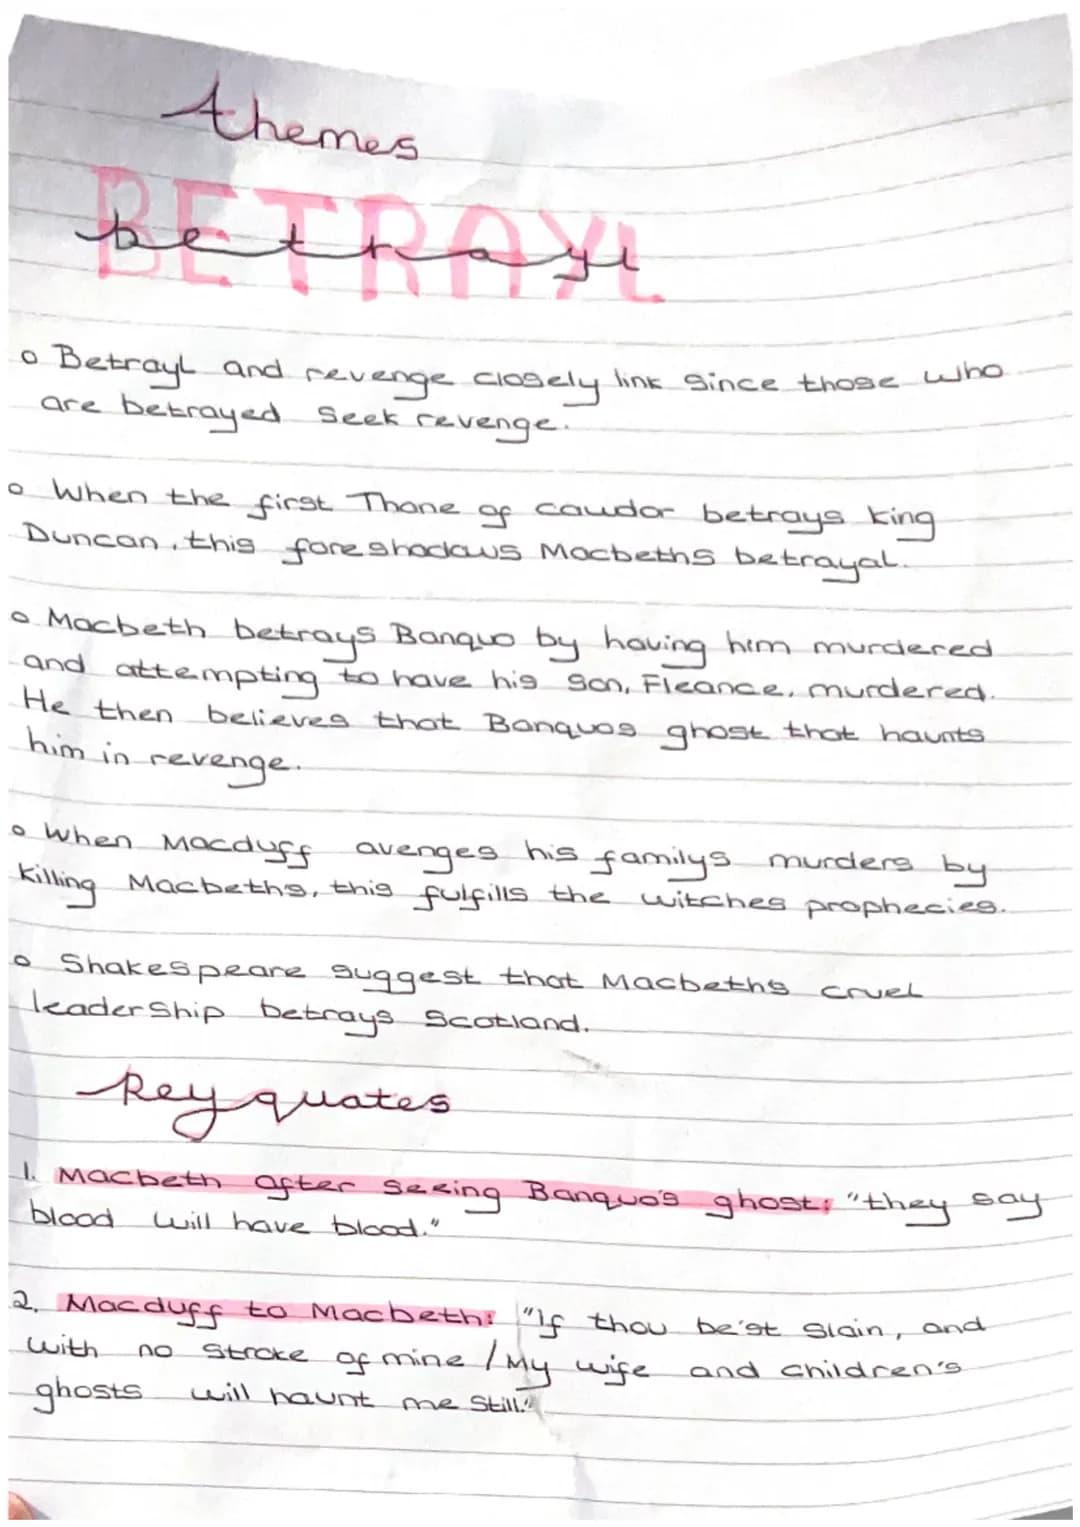 themes
BETRAYL
betrayl
o Betrayl and revenge closely link since those who
are betrayed seek revenge.
o When the first Thane of caudor betrays king
Duncan, this foreshadows Macbeths betrayal.
o Macbeth betrays Banquo by having him murdered
and attempting to have his son, Fleance, murdered.
He then believes that Banquos ghost that haunts
him in revenge.
o When Macduff avenges his familys murders by
killing Macbeths, this fulfills the witches prophecies.
o Shakespeare suggest that Macbeths cruel
leadership betrays Scotland.
key quates
1. Macbeth after seeing Banquo's ghost: "they say
blood will have blood."
2. Macduff to Macbeth: "If thou be'st slain, and
with no stroke of mine / My wife and children's
ghosts will haunt me still."